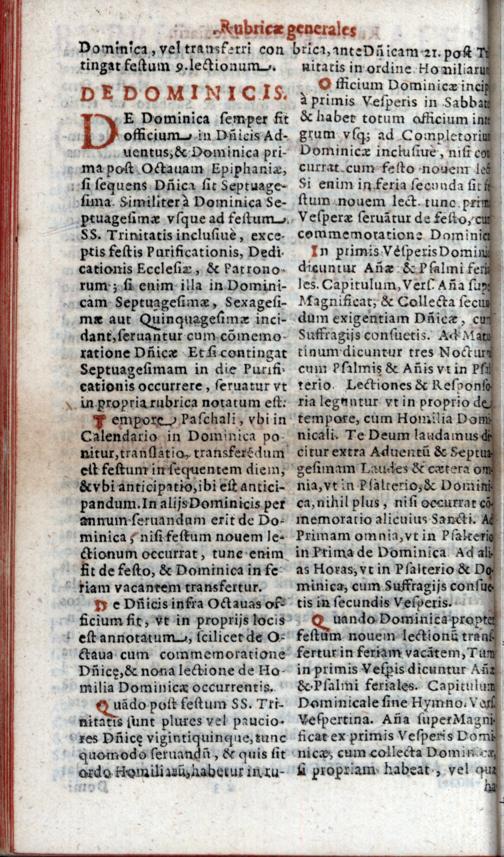 Rubricæ generales
Dominica, vel transferri con
tingat festum 9. lectionum.
DE DOMINICIS.
DE Dominica semper fit
officium in Dñicis Ad-
uentus, & Dominica pri-
ma post Octauam Epiphaniæ,
si sequens Dñica sit Septuage-
sima. Similiter à Dominica Se-
ptuagesimæ vsque ad festum
SS. Trinitatis inclusiuè, exce-
ptis festis Purificationis, Dedi
cationis Ecclesiæ, & Patrono-
rum; si enim illa in Domini-
cam Septuagesimæ, Sexagesi-
mæ aut Quinquagesimæ inci-
dant, seruantur cum cõmemo-
ratione Dñicæ Et si contingat
Septuagesimam in die Purifi-
cationis occurrere, seruatur vt
in propria rubrica notatum est.
Tempore Paschali, vbi in
Calendario in Dominica po-
nitur, translatio, transferẽdum
est festum in sequentem diem,
& vbi anticipatio, ibi est antici-
pandum. In alijs Dominicis per
annum seruandum erit de Do-
minica, nisi festum nouem le-
ctionum occurrat, tunc enim
fit de festo, & Dominica in fe
riam vacantem transfertur.
De Dñicis infra Octauas of-
ficium fit, vt in proprijs locis
est annotatum, scilicet de O-
ctaua cum commemoratione
Dñicę, & nona lectione de Ho-
milia Dominicæ occurrentis.
Quãdo post festum SS. Tri-
nitatis sunt plures vel paucio-
res Dñicę vigintiquinque, tunc
quomodo seruandũ, & quis sit
ordo Homiliarũ, habetur in ru-
brica, ante Dñicam 21. post
nitatis in ordine Homiliarum
Officium Dominicæ incip
à primis Vesperis in Sabbat
& habet totum officium inte
grum vsq; ad Completorium
Dominicæ inclusiuè, nisi con
currat cum festo nouem lect
Si enim in feria secunda sit fe
stum nouem lect. tunc prim
Vesperæ seruãtur de festo, cum
commemoratione Dominicæ
In primis Vesperis Domini
dicuntur Añæ & Psalmi feria
les. Capitulum, Vers. Aña supe
Magnificat; & Collecta secun
dum exigentiam Dñicæ, cum
Suffragijs consuetis. Ad Matu
tinum dicuntur tres Nocturn
cum Psalmis & Añis vt in Psal
terio. Lectiones & Responso
ria leguntur vt in proprio de
tempore, cum Homilia Domi
nicali. Te Deum laudamus di
citur extra Aduentũ & Septua
gesimam Laudes & cætera om
nia, vt in Psalterio, & Domini
ca, nihil plus, nisi occurrat cõ
memoratio alicuius Sancti. Ad
Primam omnia, vt in Psalterio
in Prima de Dominica. Ad ali
as Horas, vt in Psalterio & Do
minica, cum Suffragijs consue
tis in secundis Vesperis.
Quando Dominica propter
festum nouem lectionũ trans
fertur in feriam vacãtem, Tum
in primis Vespis dicuntur Añæ
& Psalmi feriales. Capitulum
Dominicale sine Hymno. Vers
Vespertina. Aña super Magni
ficat ex primis Vesperis Domi
nicæ, cum collecta Dominicæ,
si propriam habeat, vel quæ
ha